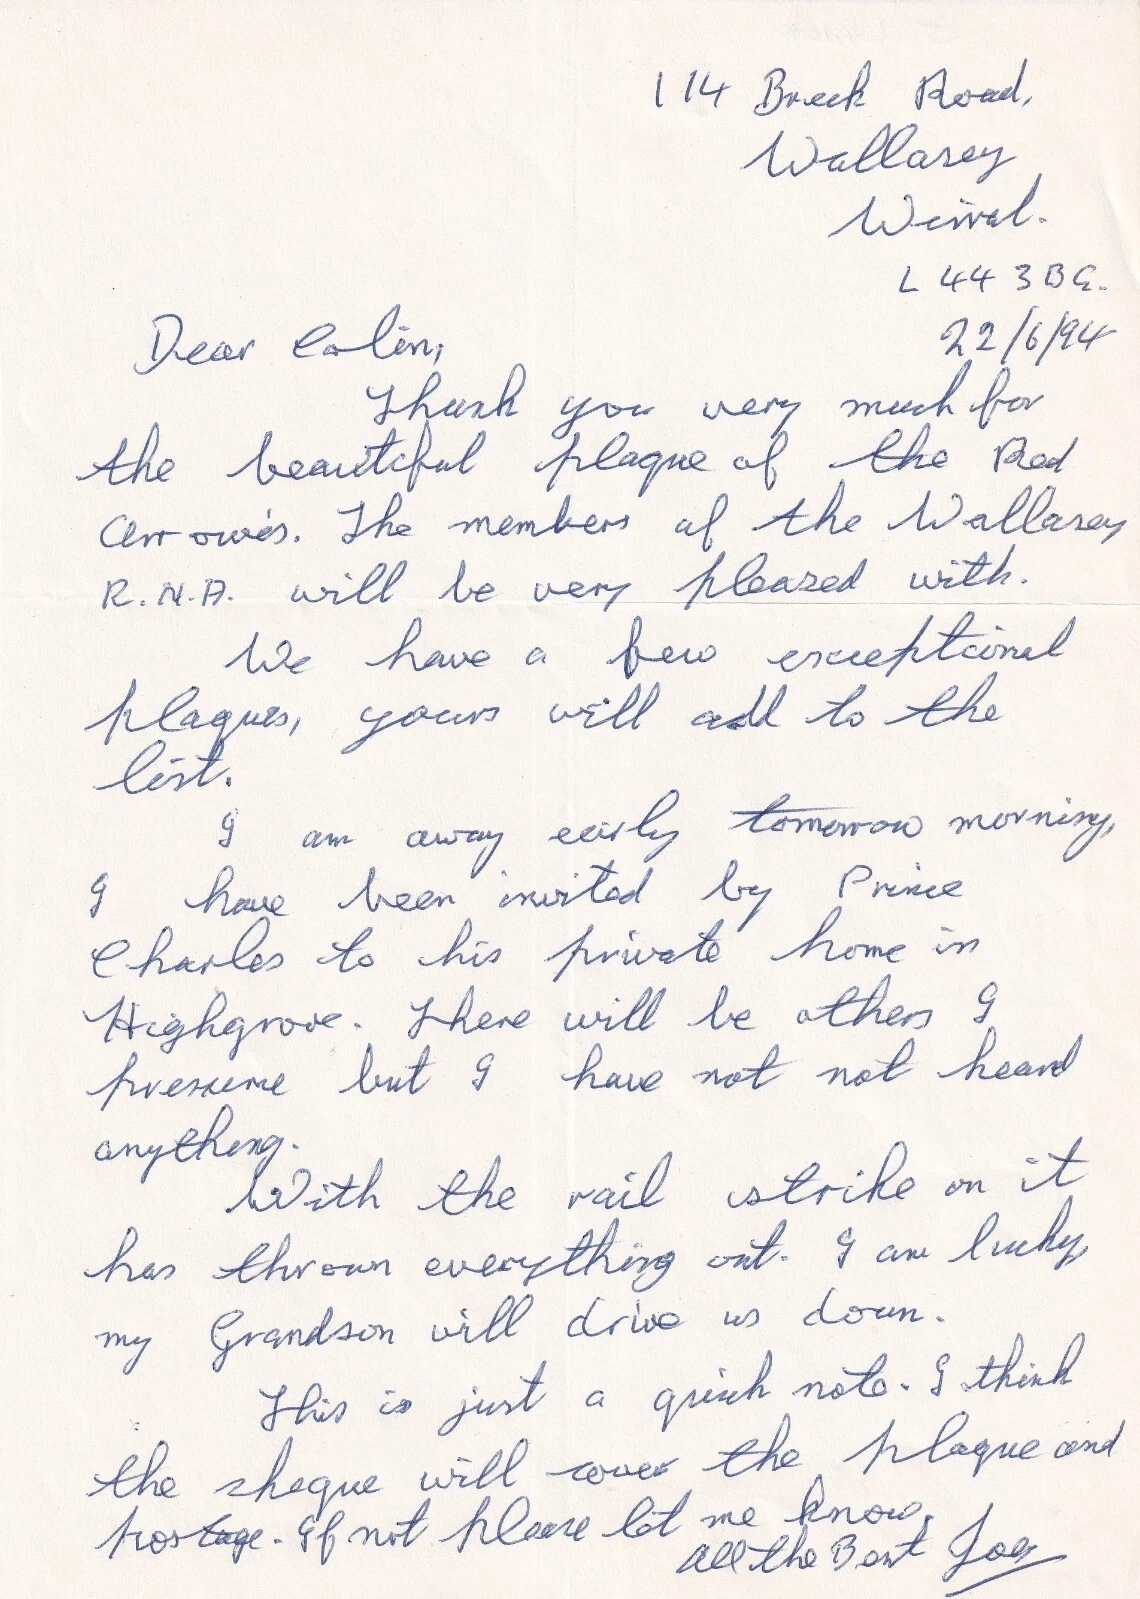 114 Breck Road,
Wallasey
Wirral.
L44 3BG.
22/6/94
Dear Colin,
Thank you very much for
the beautiful plaque of the Red
Arrows. The members of the Wallasey
R.N.A. will be very pleased with.
We have a few exceptional
plaques, yours will add to the
list.
I am away early tomorrow morning,
I have been invited by Prince
Charles to his private home in
Highgrove. There will be others I
presume but I have not not heard
anything.
With the rail strike on it
has thrown everything out. I am lucky,
my Grandson will drive us down.
This is just a quick note. I think
the cheque will cover the plaque and
postage. If not please let me know.
All the Best Joe